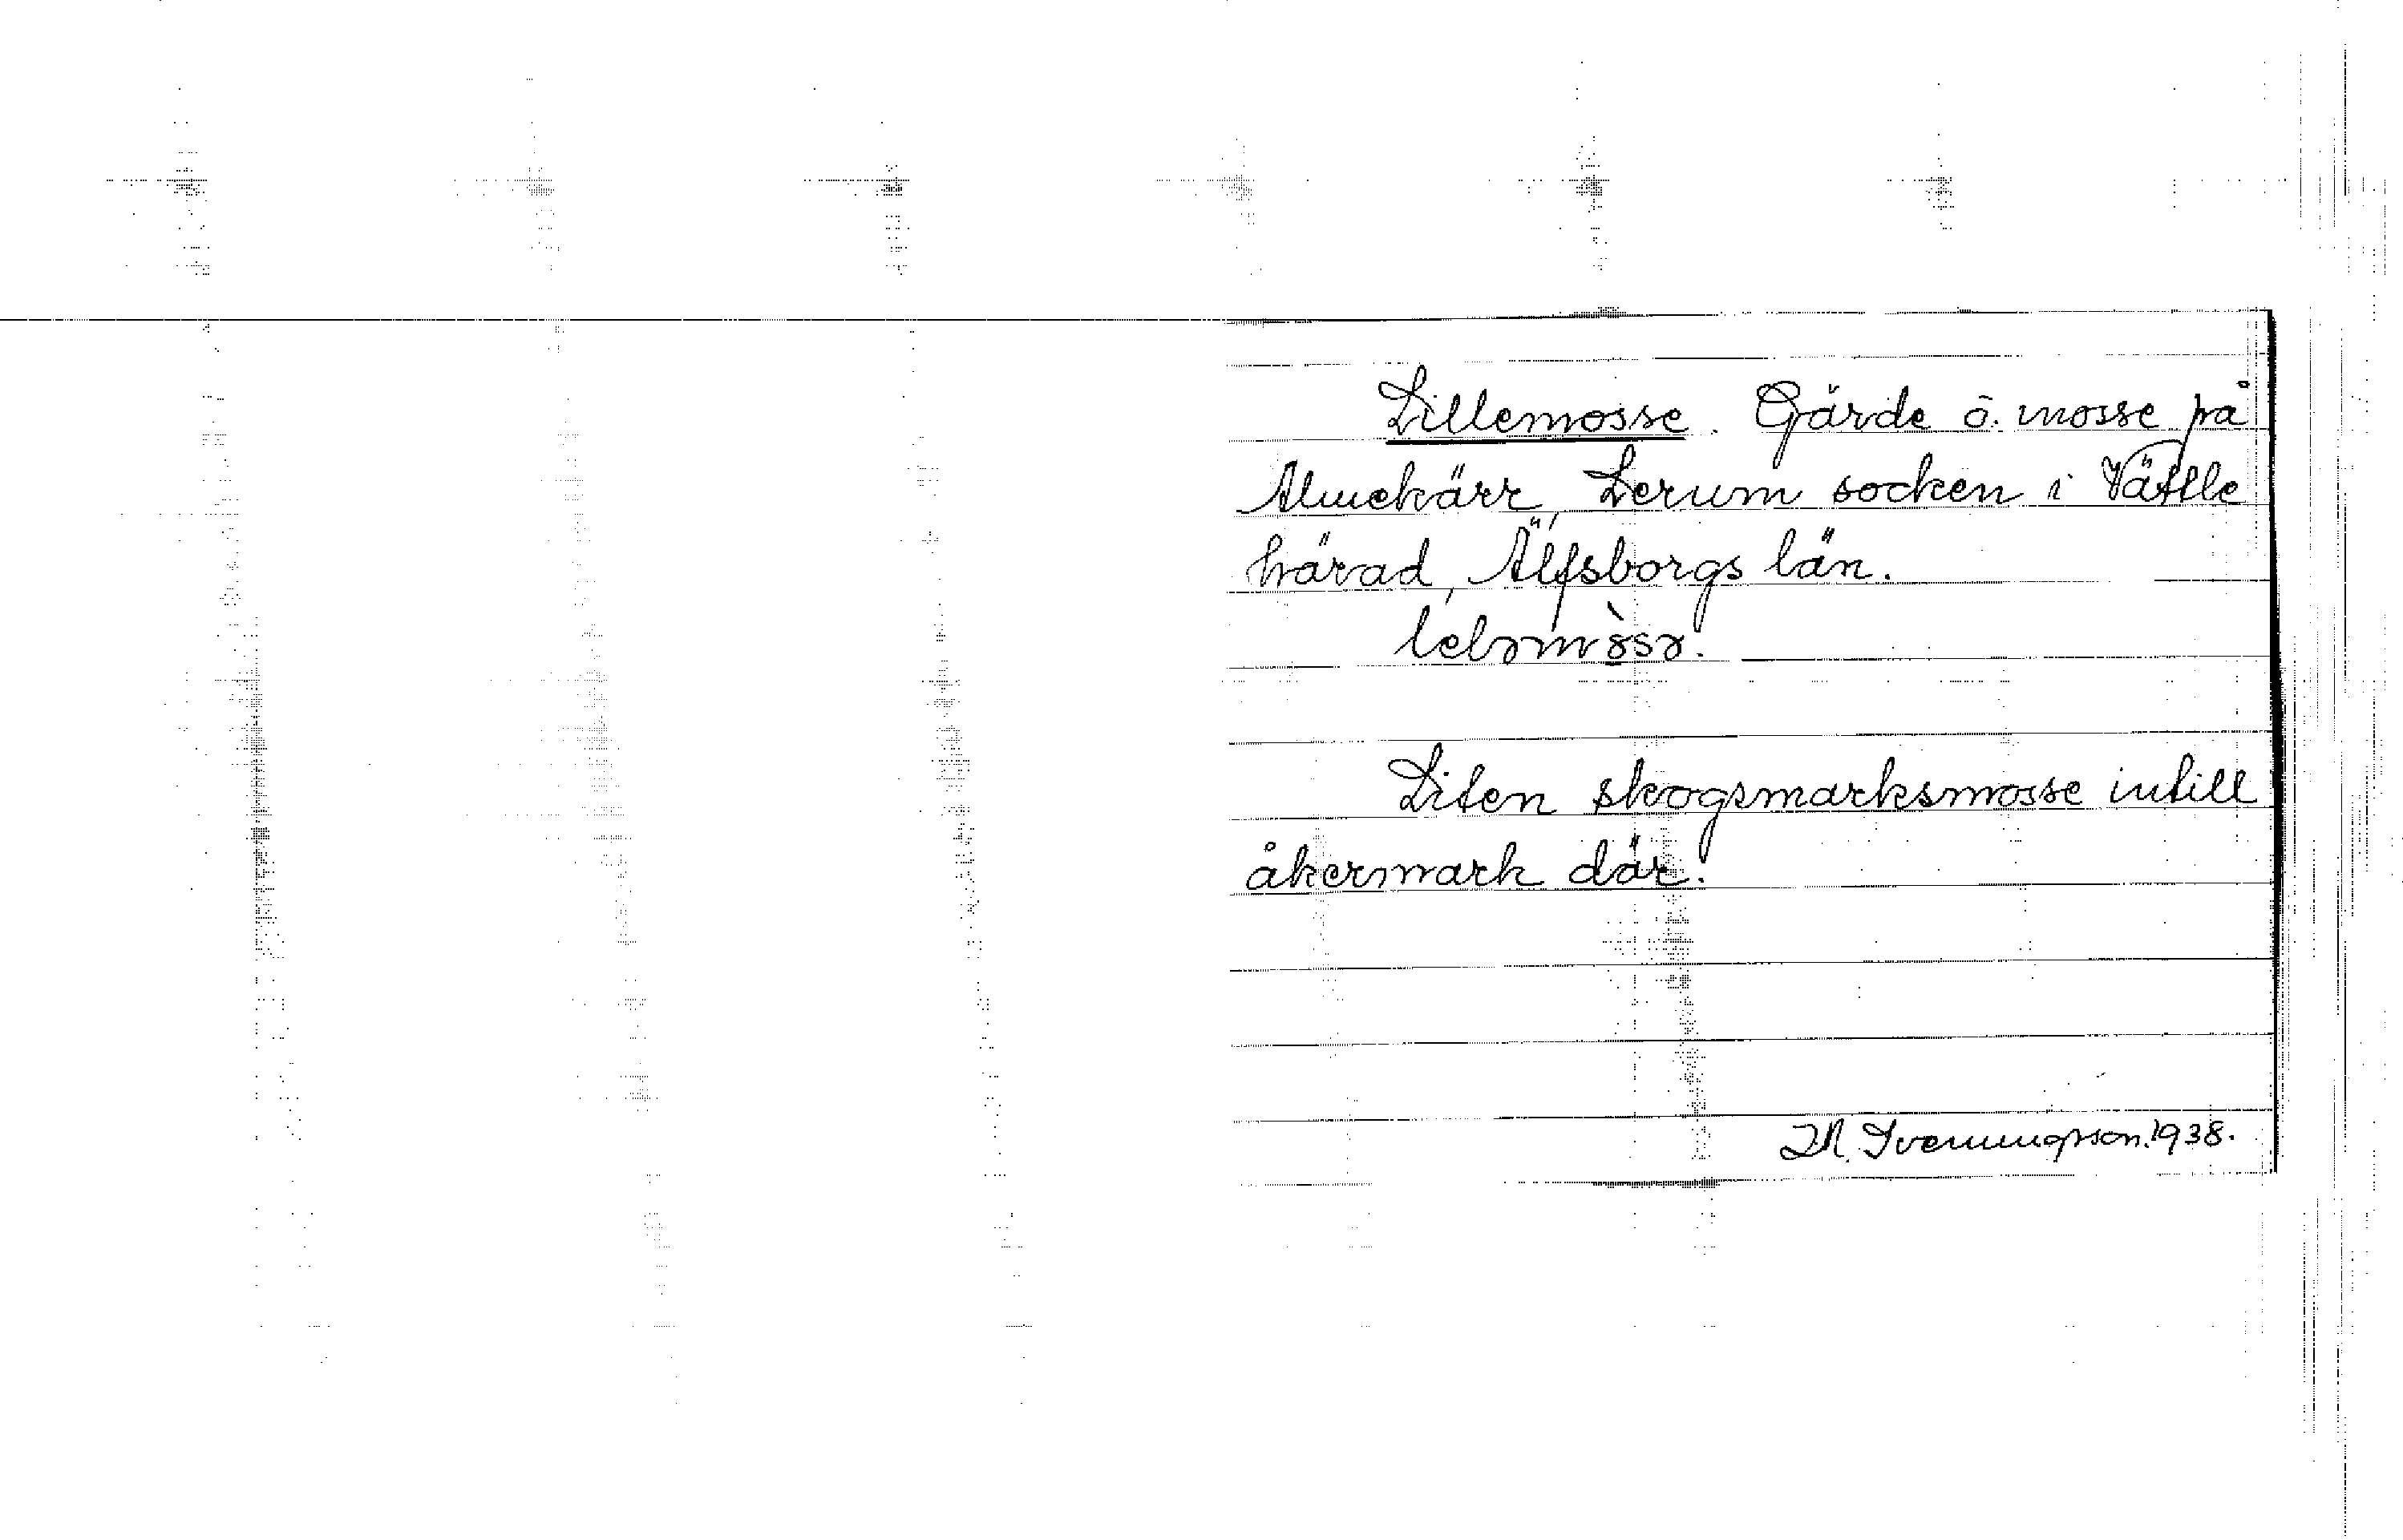 Lillemosse. Gärde ö. mosse på
Almekärr, Lerum socken i Vättle
härad, Älfsborgs län.
Liten skogsmarksmosse intill
åkermark där.
1938.